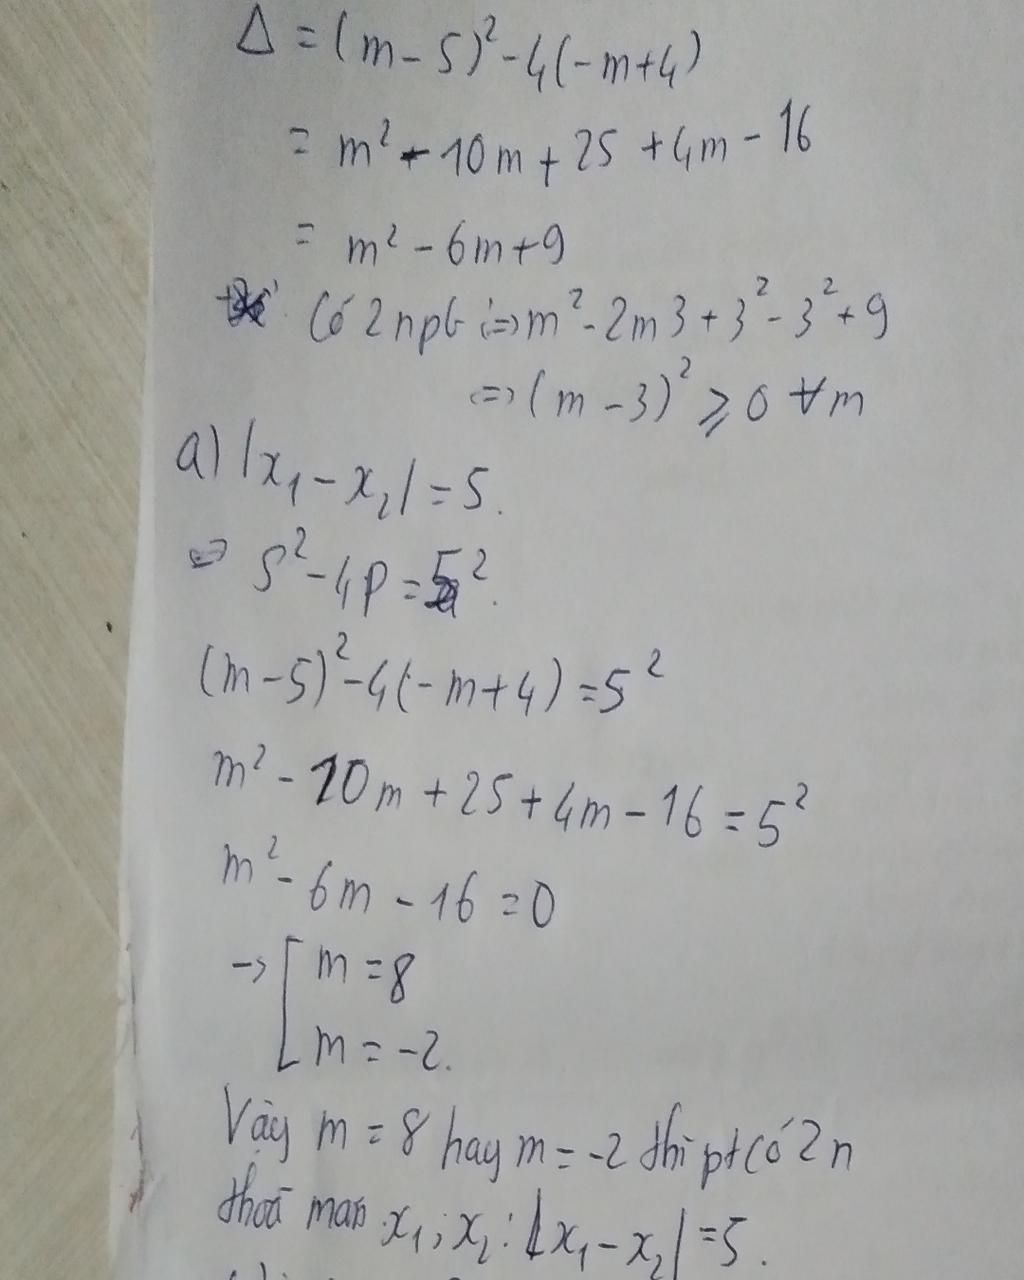 Δ = (m - 5)² - 4(-m+4)
= m² - 10m + 25 + 4m - 16
= m² - 6m + 9
Có 2npb <=> m² - 2m3 + 3² - 3² + 9
<=> (m - 3)² ⩾ 0 ∀m
a) |x₁ - x₂| = 5.
<=> S² - 4P = 5².
(m - 5)² - 4(-m+4) = 5²
m² - 10m + 25 + 4m - 16 = 5²
m² - 6m - 16 = 0
-> [ m = 8
m = -2.
Vậy m = 8 hay m = -2 thì pt có 2n
thoả mãn x₁; x₂ : |x₁ - x₂| = 5.